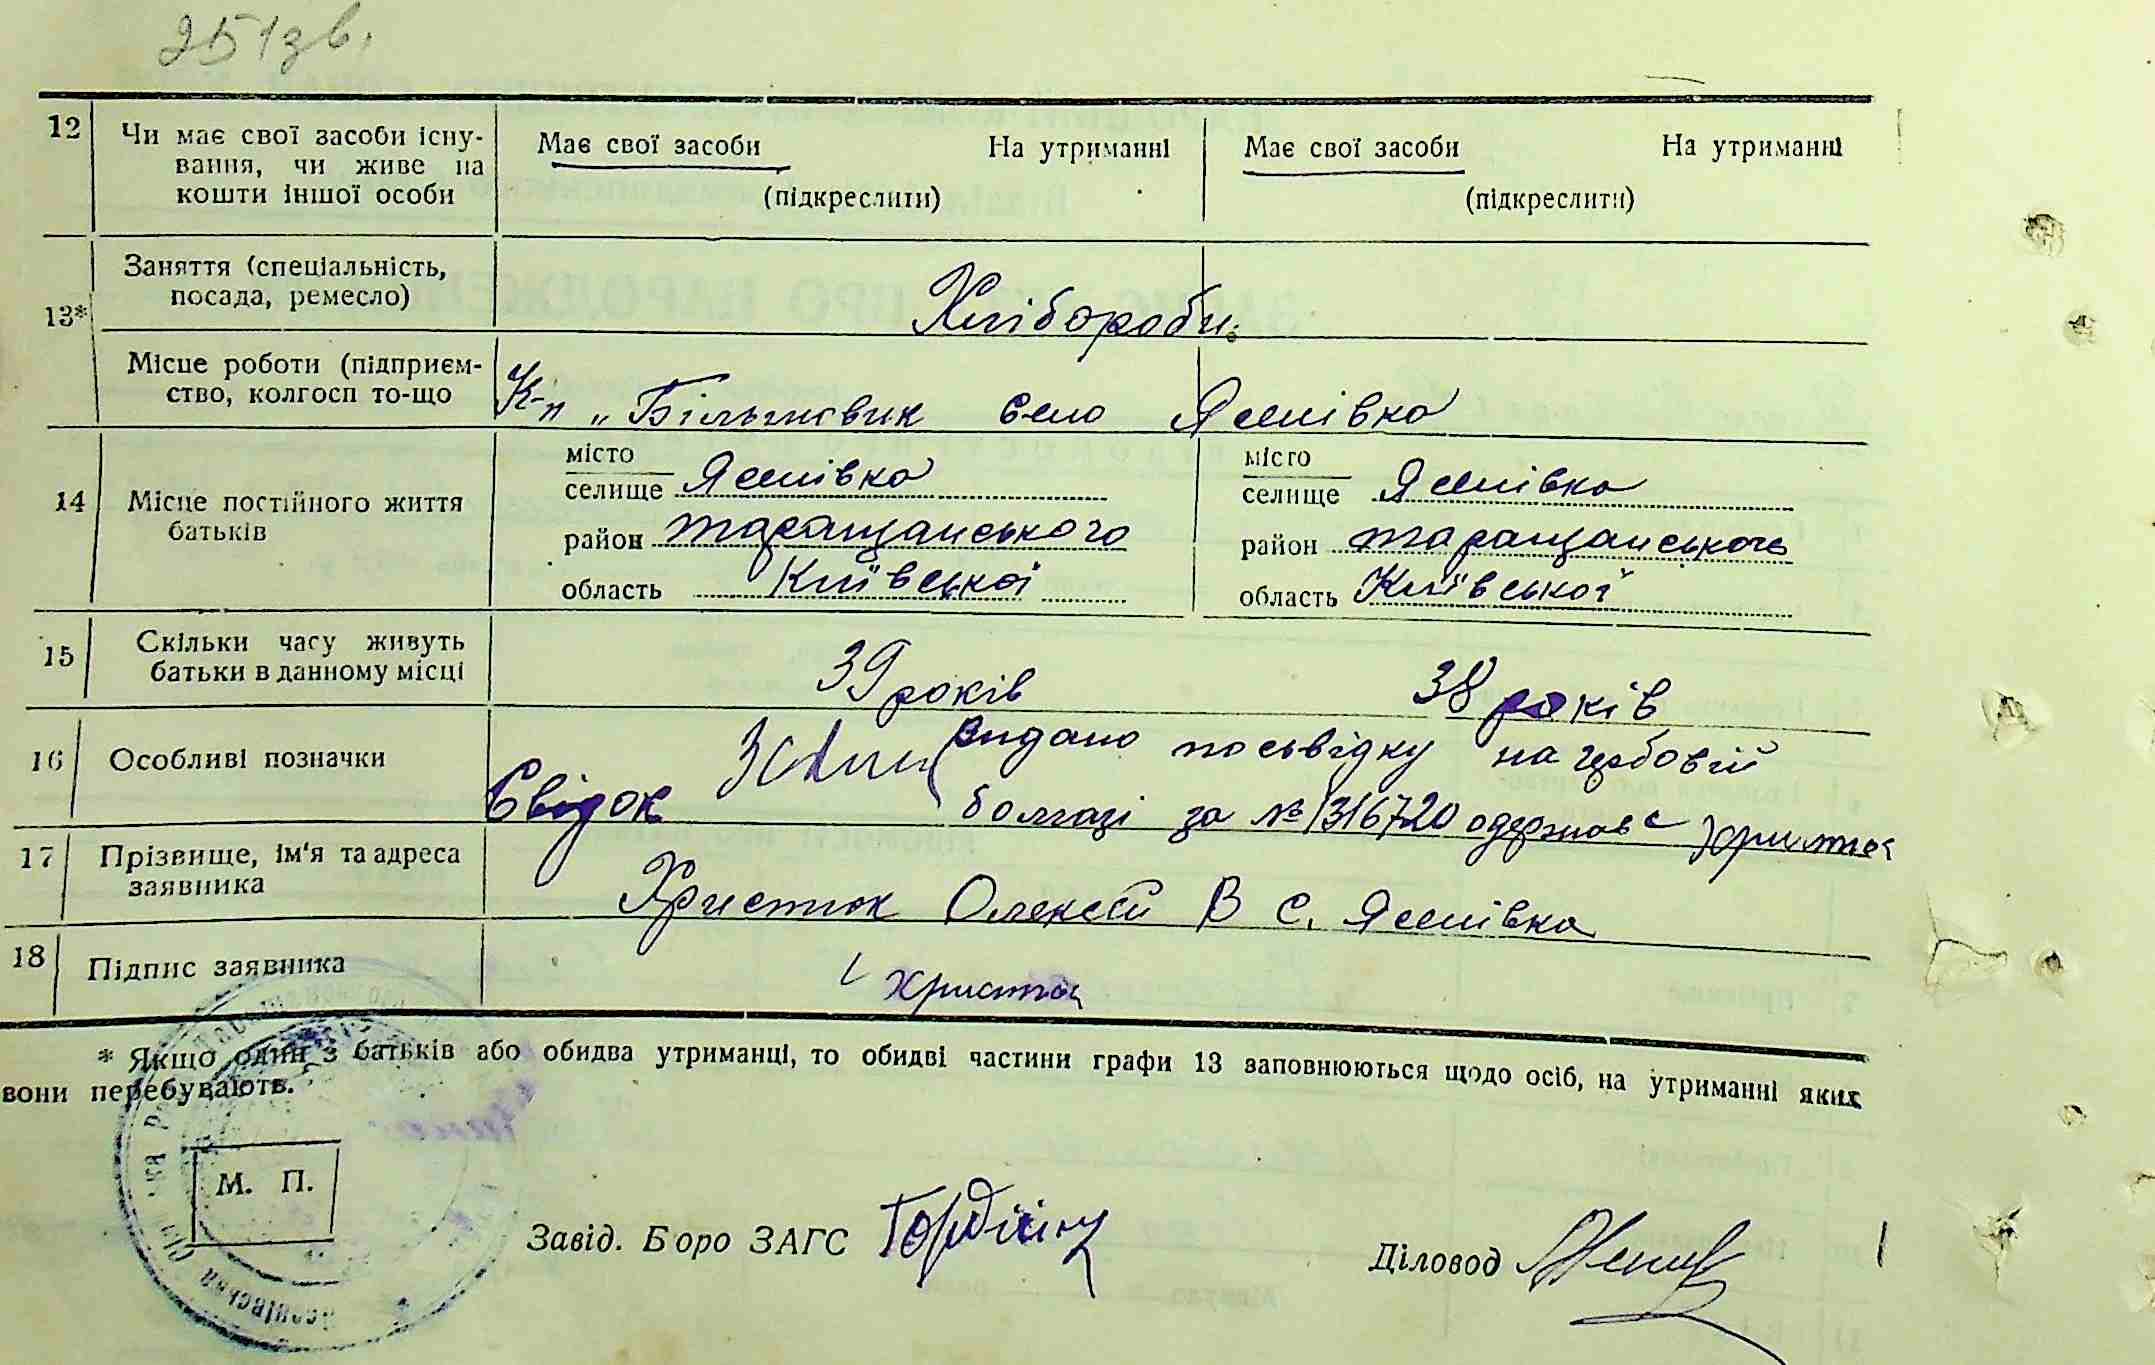 251зв.
12
Чи має свої засоби існу-
вання, чи живе на
кошти іншої особи
Має свої засоби На утриманні
(підкреслити)
Має свої засоби На утриманні
(підкреслити)
13*
Заняття (спеціальність,
посада, ремесло)
Хлібороби.
Місце роботи (підприєм-
ство, колгосп то-що
К-п „Більшовик село Яснівка
14
Місце постійного життя
батьків
місто
селище Яснівка
район таращанського
область Київської
місто
селище Яснівка
район таращанського
область Київської
15
Скільки часу живуть
батьки в данному місці
39 років 38 років
16
Особливі позначки
видано посвідку на гербовій
Свідок
за № 1316720 одержав Христюк
17
Прізвище, ім'я та адреса
заявника
Христюк Олексій В с. Яснівка
18
Підпис заявника
Христюк
* Якщо один з батьків або обидва утриманці, то обидві частини графи 13 заповнюються щодо осіб, на утриманні яких
вони перебувають.
М. П.
Завід. Бюро ЗАГС
Діловод